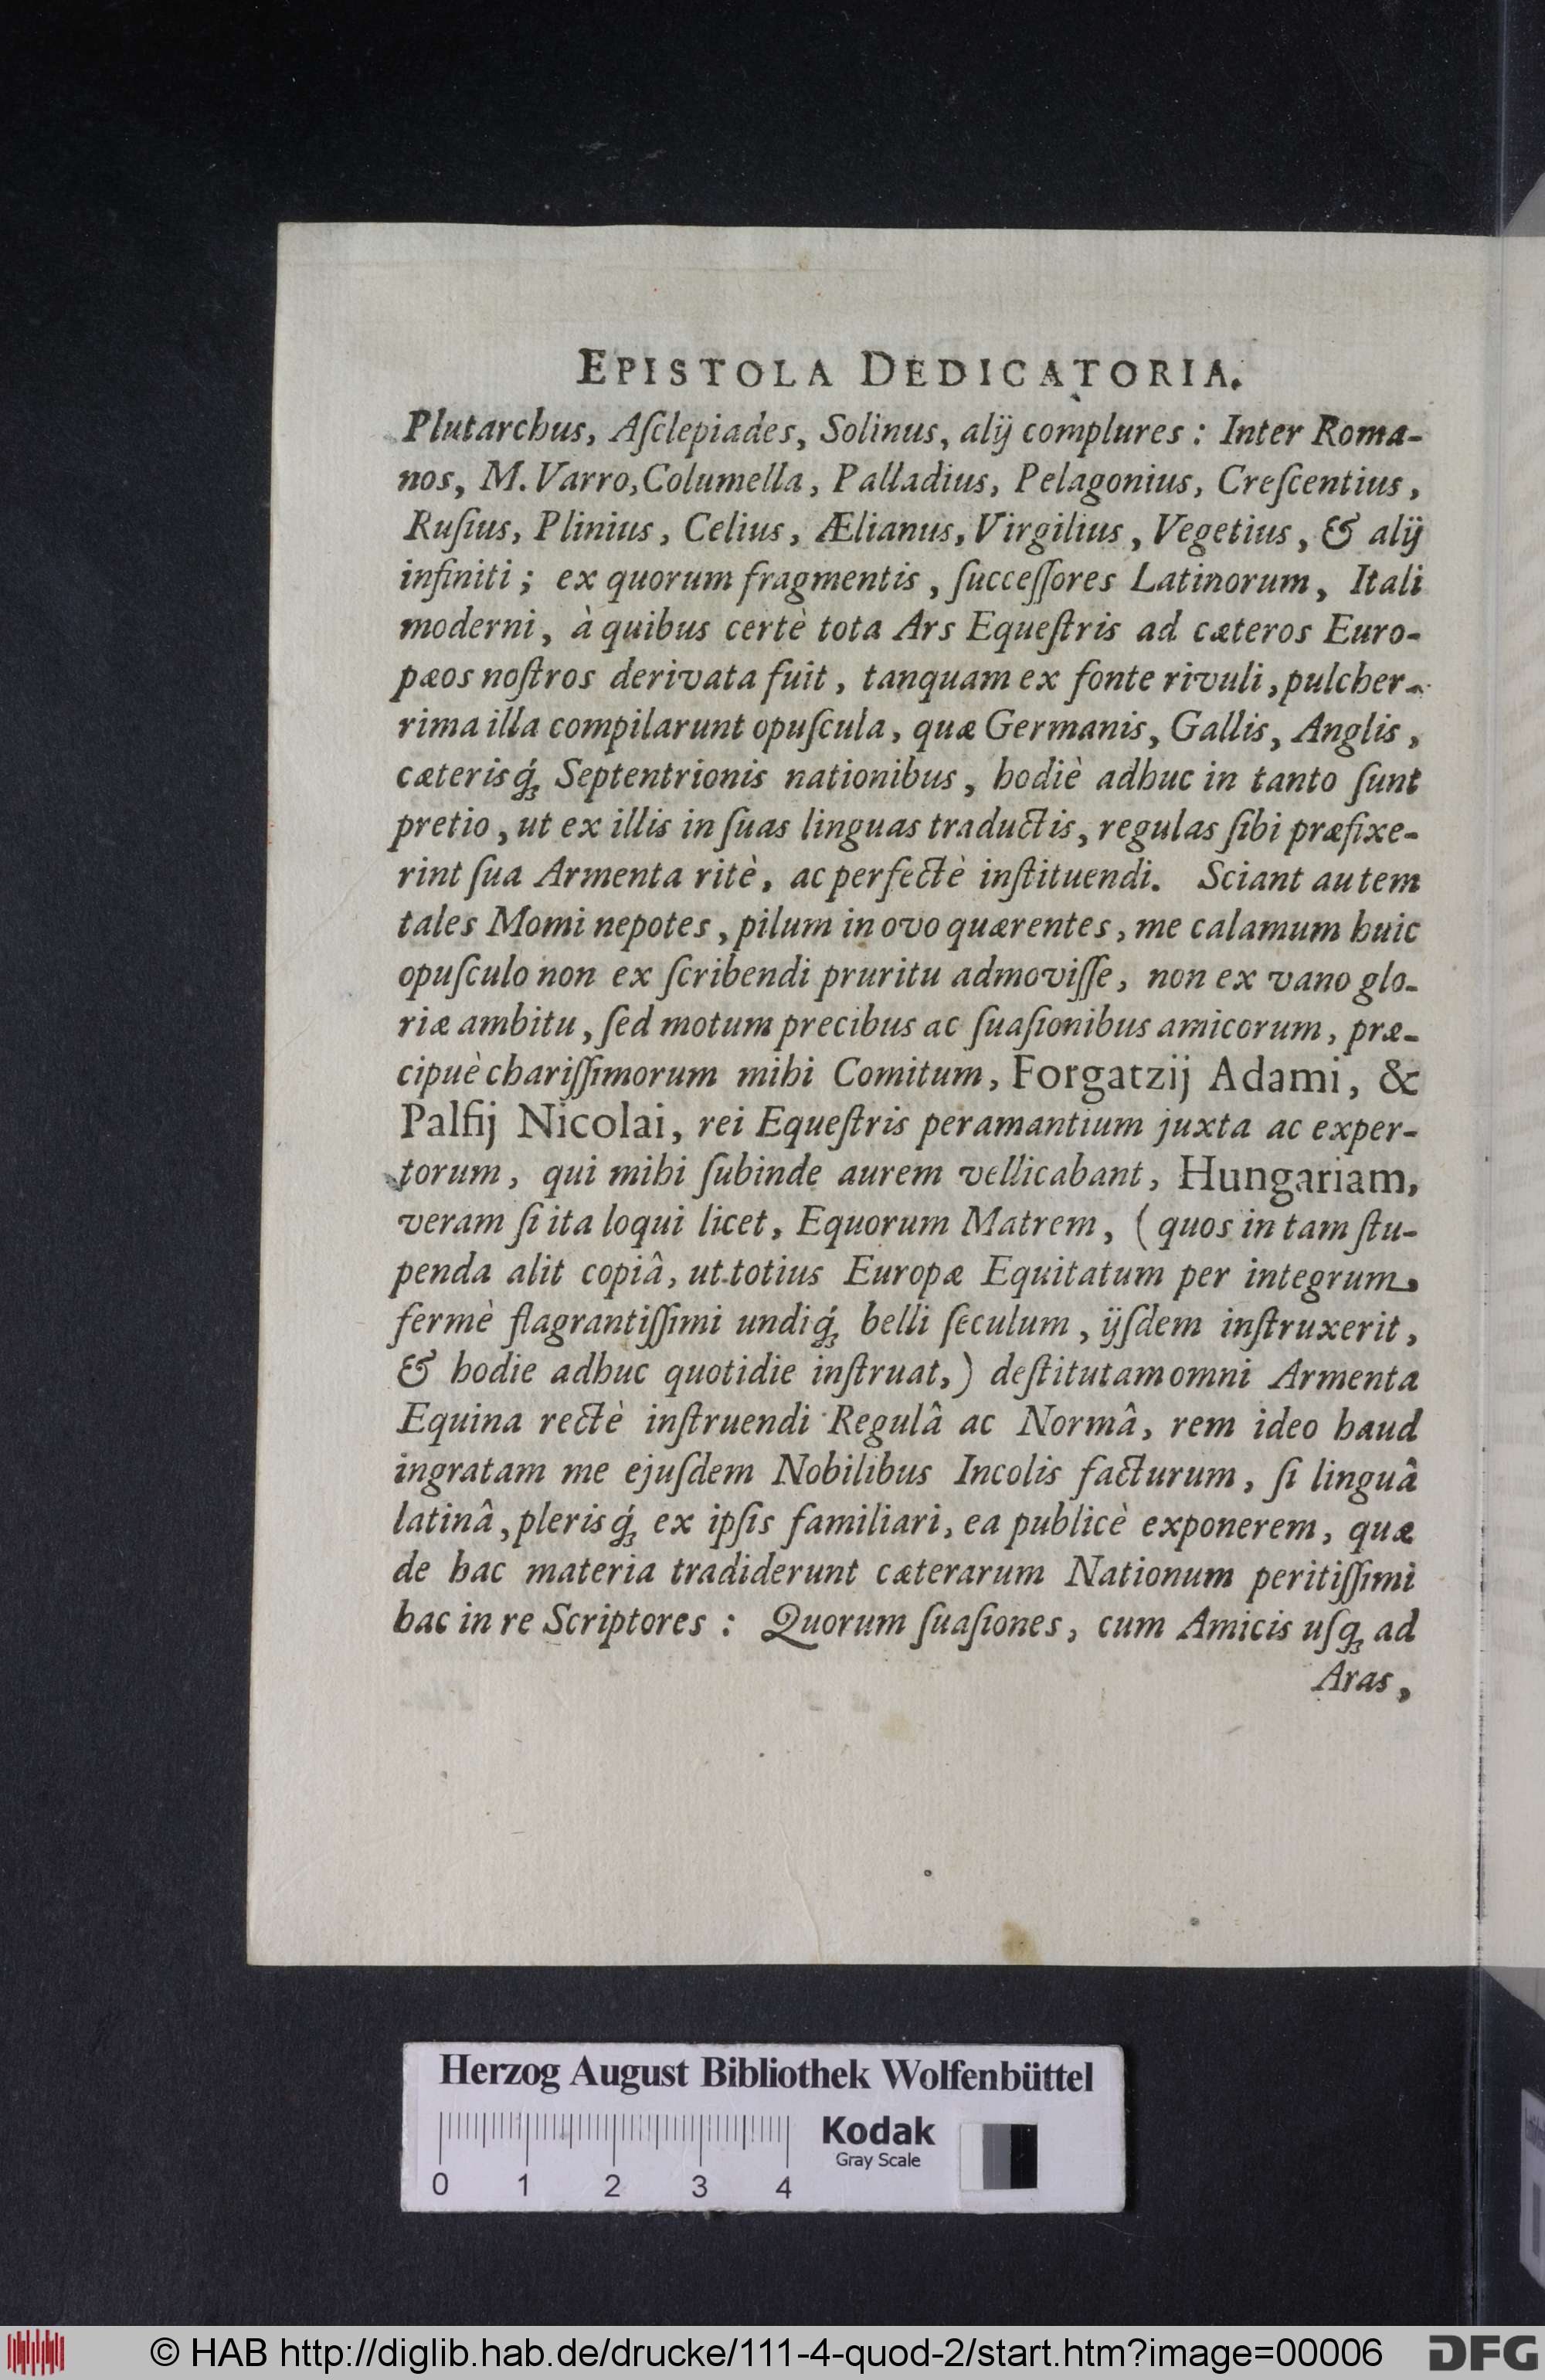 EPISTOLA DEDICATORIA.
Plutarchus, Aſclepiades, Solinus, alij complures : Inter Roma-
nos, M. Varro, Columella, Palladius, Pelagonius, Creſcentius,
Ruſius, Plinius, Celius, Ælianus, Virgilius, Vegetius, & alij
infiniti ; ex quorum fragmentis, ſucceſſores Latinorum, Itali
moderni, à quibus certè tota Ars Equeſtris ad cæteros Euro-
pæos noſtros derivata fuit, tanquam ex fonte rivuli, pulcher-
rima illa compilarunt opuſcula, quæ Germanis, Gallis, Anglis,
cæterisq́; Septentrionis nationibus, hodiè adhuc in tanto ſunt
pretio, ut ex illis in ſuas linguas traductis, regulas ſibi præfixe-
rint ſua Armenta ritè, ac perfectè inſtituendi. Sciant autem
tales Momi nepotes, pilum in ovo quærentes, me calamum huic
opuſculo non ex ſcribendi pruritu admoviſſe, non ex vano glo-
riæ ambitu, ſed motum precibus ac ſuaſionibus amicorum, præ-
cipuè chariſſimorum mihi Comitum, Forgatzij Adami, &
Palfij Nicolai, rei Equeſtris peramantium juxta ac exper-
torum, qui mihi ſubinde aurem vellicabant, Hungariam,
veram ſi ita loqui licet, Equorum Matrem, ( quos in tam ſtu-
penda alit copiâ, ut totius Europæ Equitatum per integrum,
fermè flagrantiſſimi undiq́; belli ſeculum, ijſdem inſtruxerit,
& hodie adhuc quotidie inſtruat,) deſtitutam omni Armenta
Equina rectè inſtruendi Regulâ ac Normâ, rem ideo haud
ingratam me ejuſdem Nobilibus Incolis facturum, ſi linguâ
latinâ, plerisq́; ex ipſis familiari, ea publicè exponerem, quæ
de hac materia tradiderunt cæterarum Nationum peritiſſimi
hac in re Scriptores : Quorum ſuaſiones, cum Amicis uſq; ad
Aras,
Herzog August Bibliothek Wolfenbüttel
Kodak
Gray Scale
0 1 2 3 4
© HAB http://diglib.hab.de/drucke/111-4-quod-2/start.htm?image=00006
DFG